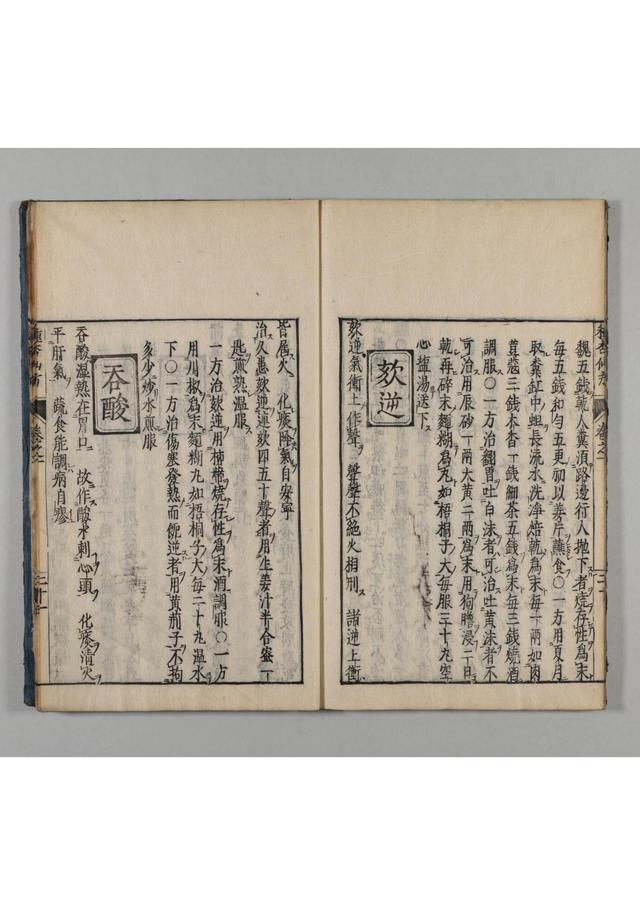 魏五錢乾人糞湏路邊行人拋下者燒存性爲末
每五錢和勻五更初以姜片蘸食〇一方用夏月
取糞缸中蛆長流水洗淨焙乾爲末每一兩如肉
蔻三錢木香一錢細茶五錢爲末每三錢燒酒
調服〇一方治翻胃吐白沫者可治吐黄沫者不
可治用辰砂一兩大黄二兩爲末用狗膽浸二日
乾再碎末麵糊爲丸如梧桐子大每服三十丸空
心盐湯送下
欬逆
欬逆氣衝上作聲 聲聲不絶火相刑 諸逆上衝
皆属火 化痰降氣自安寧
治久患欬逆連欬四五十聲者用生姜汁半合蜜一
匙煎熟温服
一方治欬逆用柿蒂燒存性爲末酒調服〇一方
用川椒爲末麵糊丸如梧桐子大每二十丸温水
下〇一方治傷寒發熱而餓逆者用黄荊子不拘
多少炒水煎服
吞酸
吞酸湿熱在胃口 故作酸水刺心頭 化痰清火
平肝氣 蔬食能調病自瘳
種杏仙方
卷之一